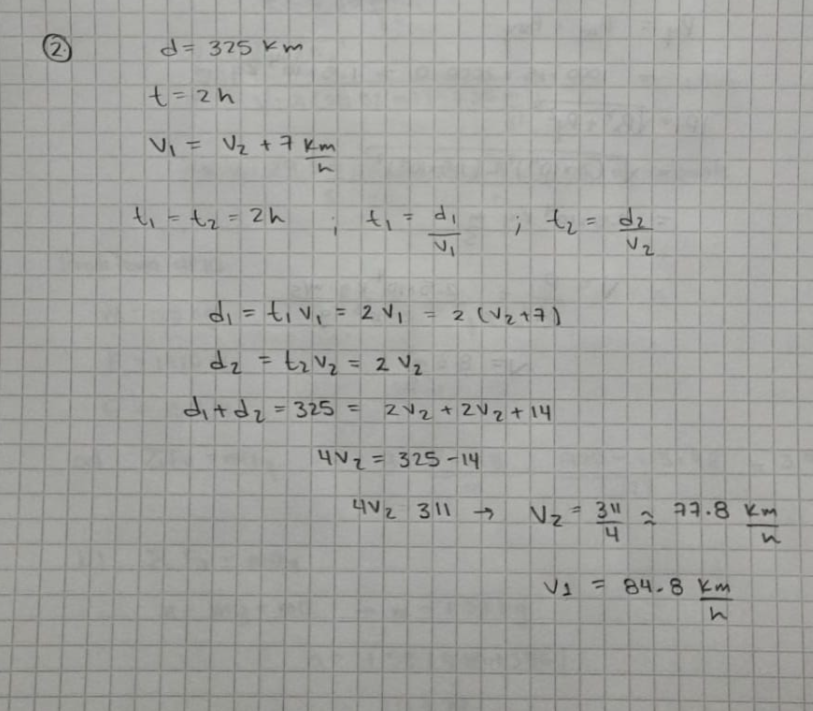 ② d = 325 km
t = 2h
V₁ = V₂ + 7 km/h
t₁ = t₂ = 2h ; t₁ = d₁/V₁ ; t₂ = d₂/V₂
d₁ = t₁ V₁ = 2 V₁ = 2 (V₂+7)
d₂ = t₂ V₂ = 2 V₂
d₁ + d₂ = 325 = 2V₂ + 2V₂ + 14
4V₂ = 325 - 14
4V₂ 311 → V₂ = 311/4 ≈ 77.8 km/h
V1 = 84.8 km/h